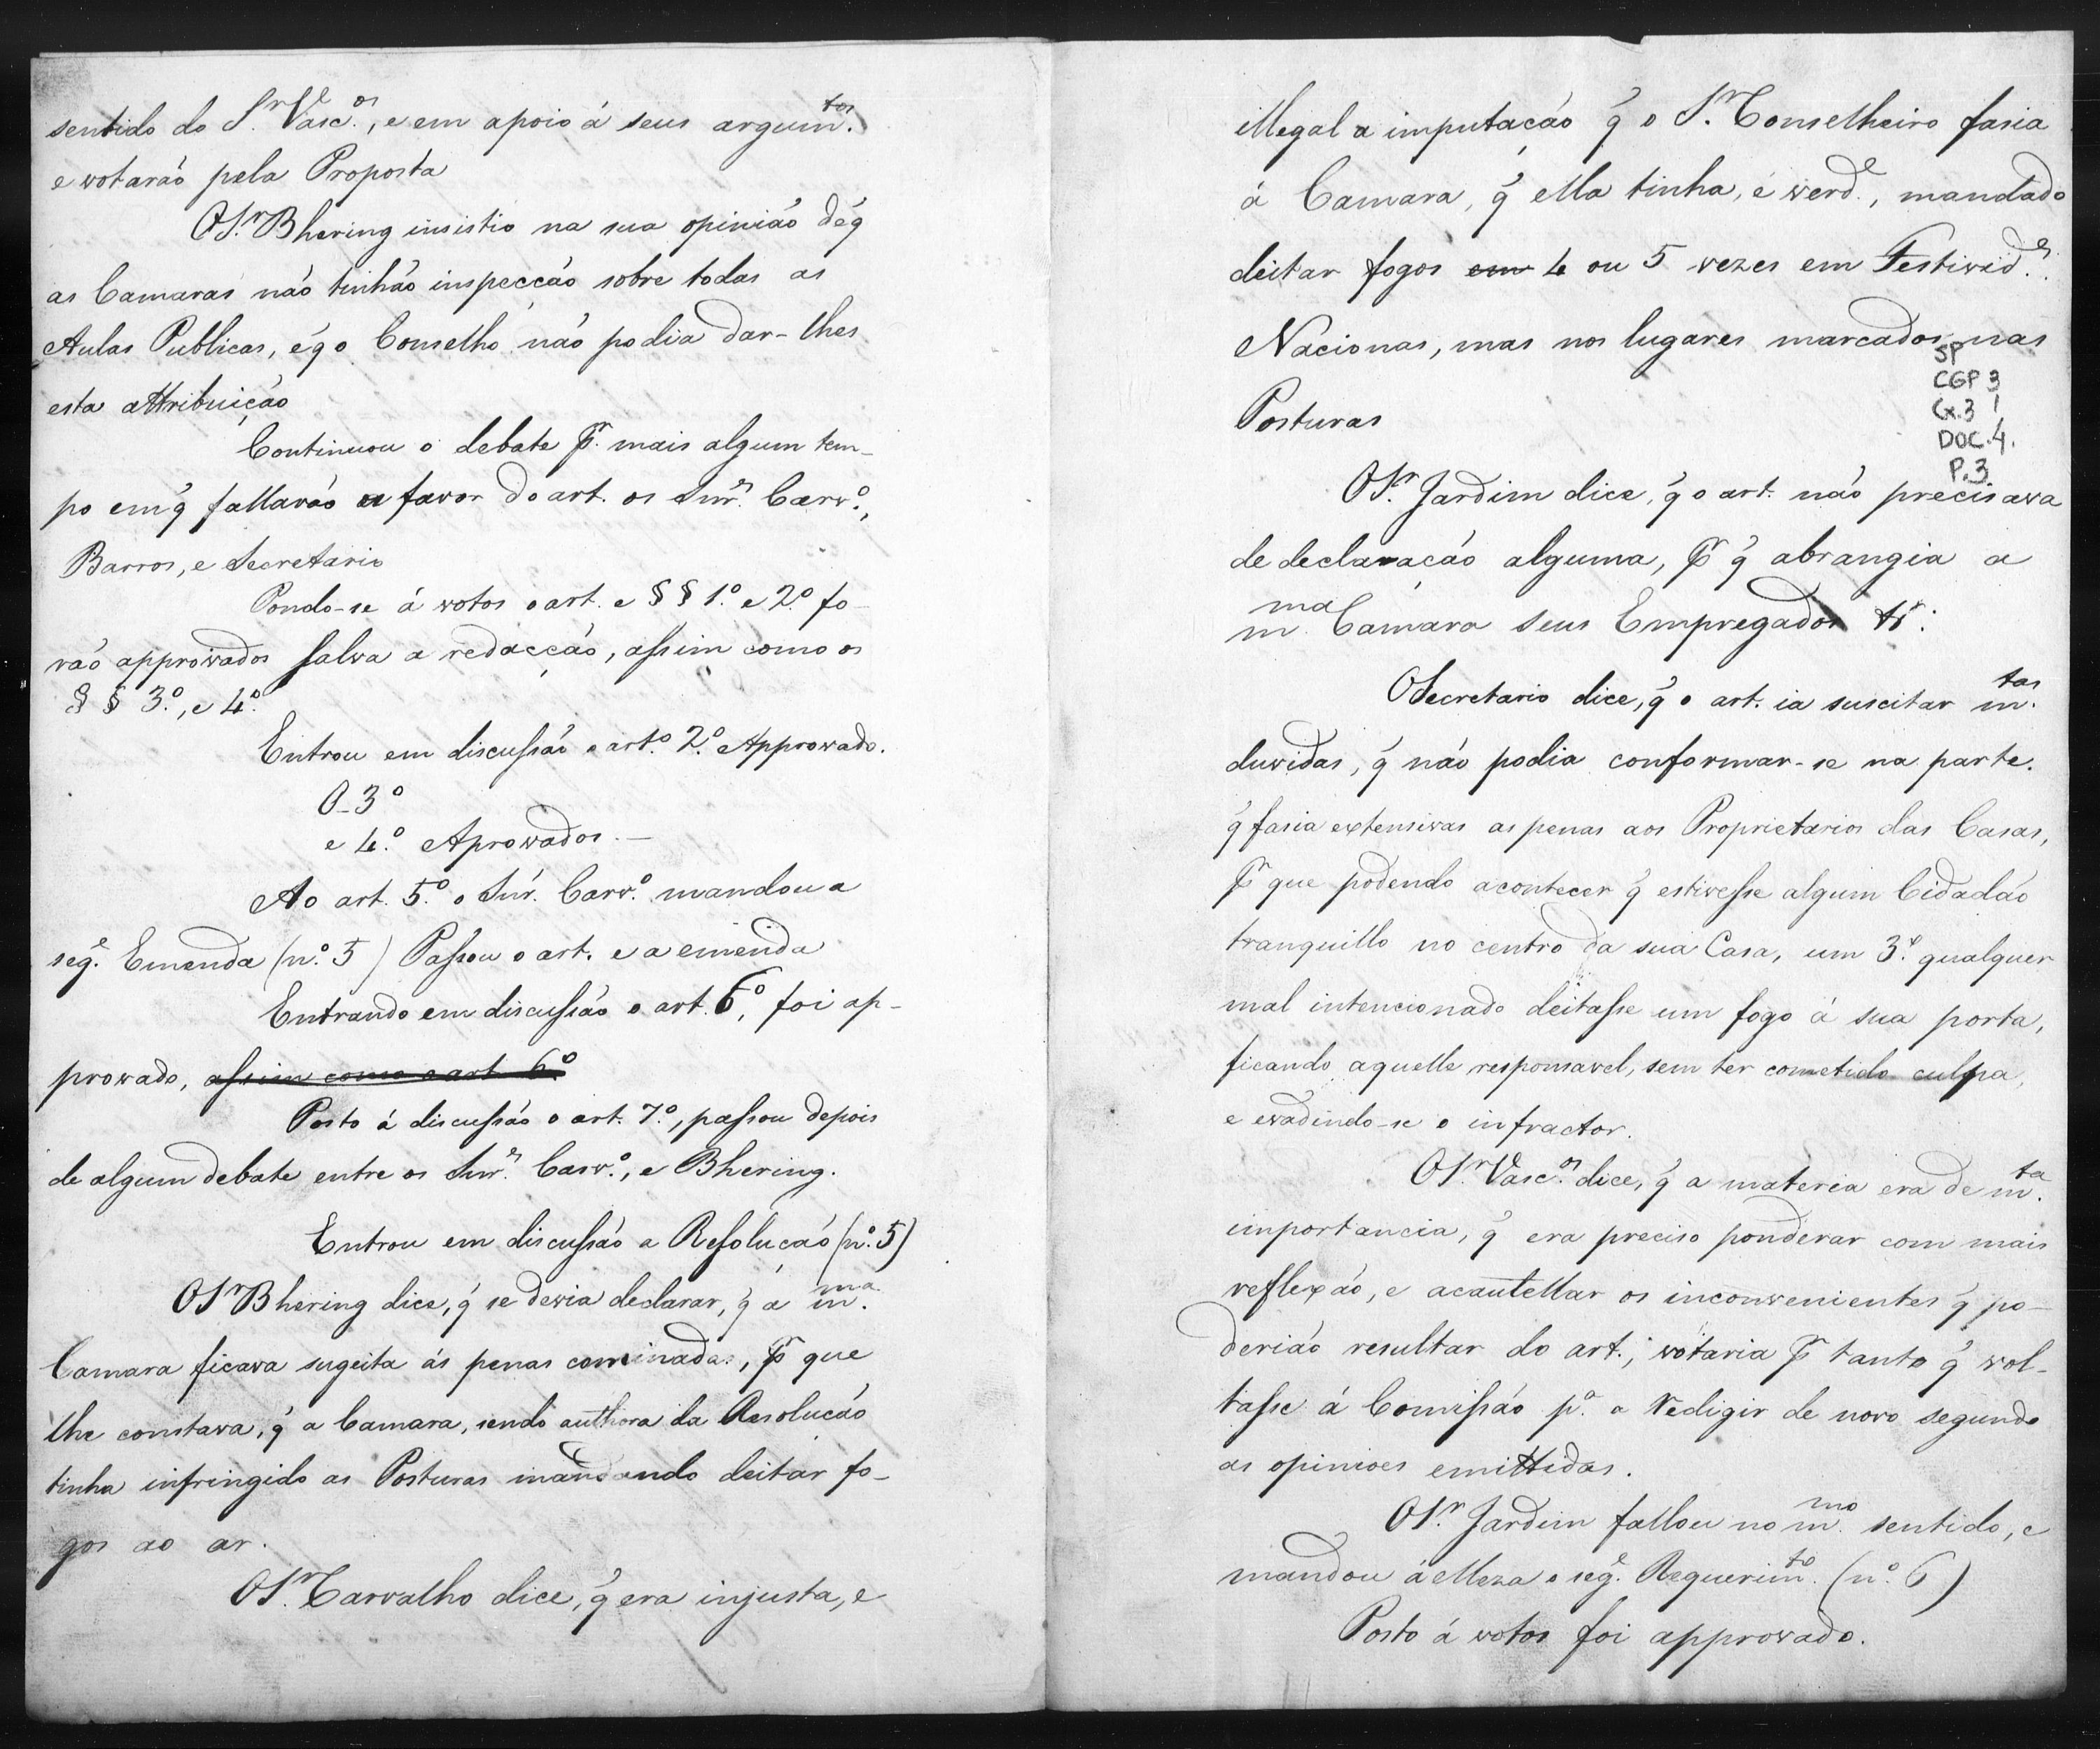 sentido do Sr. Vasc.os, e em apoio á seus argum.tos
e votaráo pela Proposta
O Sr. Bhering insistio na sua opiniáo de q̃
as Camaras náo tinháo inspecçáo sobre todas as
Aulas Publicas, e q̃ o Conselho náo podia dar-lhes
esta attribuiçáo
Continuou o debate pr. mais algum tem-
po em q̃ fallaráo a favor do art. os Snrs. Carv.o,
Barros, e Secretario
Pondo-se á votos o art. e §§ 1.º e 2.º fo-
ráo approvados salva a redacçáo, assim como os
§§ 3.º, e 4.º
Entrou em discussáo o art.º 2.º Approvado.
O 3º
e 4.º Aprovados. —
Ao art. 5.º o Snr. Carv.o mandou a
seg.e Emenda (n.º 5) Passou o art. e a emenda
Entrando em discussáo o art. 6.º, foi ap-
provado, assim como o art. 6.º
Posto á discussáo o art. 7.º, passou depois
de algum debate entre os Snrs. Carv.o, e Bhering.
Entrou em discussáo a Resoluçáo (n.º 5)
O Sr. Bhering dice, q̃ se devia declarar, q̃ a m.ma
Camara ficava sugeita ás penas cominadas, pr que
lhe constava, q̃ a Camara, sendo authora da Resoluçáo
tinha infringido as Posturas mandando deitar fo-
gos ao ar.
O Sr. Carvalho dice, q̃ era injusta, e
illegal a imputaçáo q̃ o Sr. Conselheiro fasia
á Camara, q̃ ella tinha, é verd.e, mandado
deitar fogos em 4 ou 5 vezes em Festivid.es
Nacionas, mas nos lugares marcados nas
Posturas
SP
CGP 3
Cx. 3 1
DOC. 4.
P. 3
O Sr. Jardim dice, q̃ o art. náo precisava
de declaraçáo alguma, pr q̃ abrangia a
m.ma Camara seus Empregados &.
O Secretario dice, q̃ o art. ia suscitar m.tas
duvidas, q̃ náo podia conformar-se na parte.
q̃ fasia extensivas as penas aos Proprietarios das Casas,
pr que podendo acontecer q̃ estivesse algum Cidadáo
tranquillo no centro da sua Casa, um 3.º qualquer
mal intencionado deitasse um fogo á sua porta,
ficando aquelle responsavel, sem ter cometido culpa,
e evadindo-se o infractor.
O Sr. Vasc.os dice, q̃ a materia era de m.ta
importancia, q̃ era preciso ponderar com mais
reflexáo, e acautellar os inconvenientes q̃ po-
deriáo resultar do art.; votaria pr tanto q̃ vol-
tasse á Comissáo p.a a redigir de novo segundo
as opinioes emittidas.
O Sr. Jardim fallou no m.mo sentido, e
mandou á Meza o seg.e Requerim.to (n.º 6)
Posto á votos foi approvado.